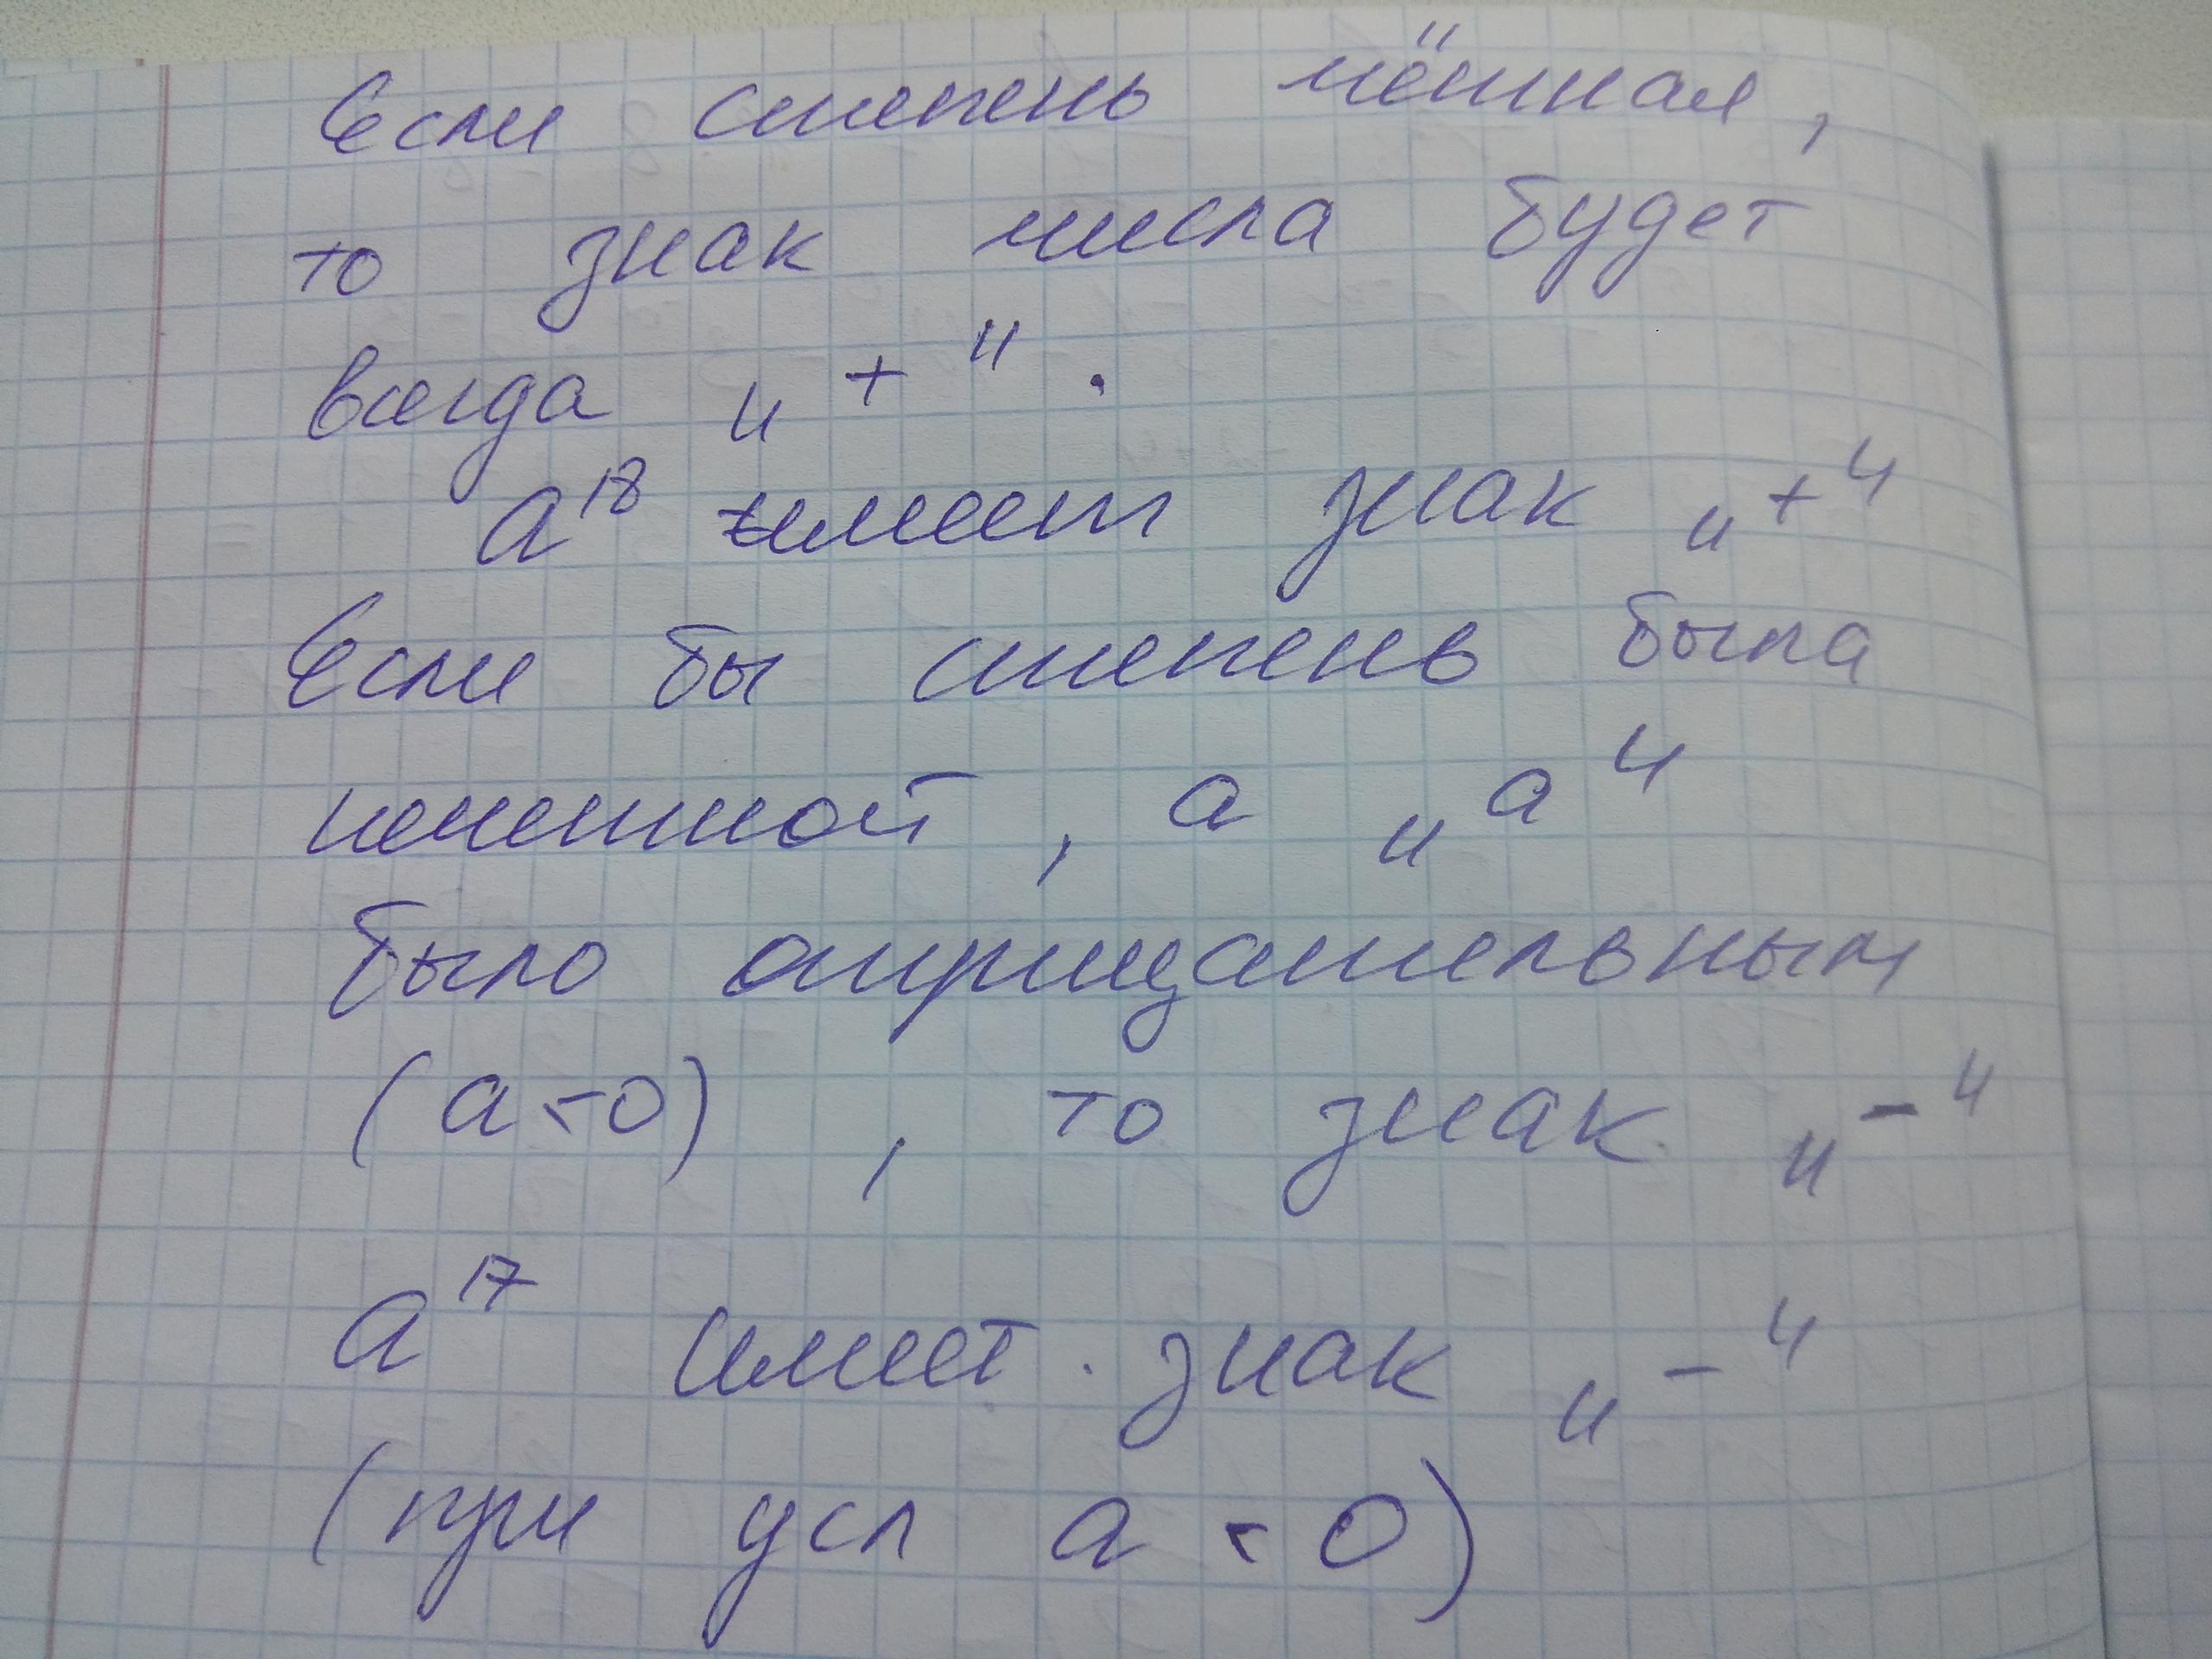 Если степень чётная,
то знак числа будет
всегда „+".
a¹⁸ имеет знак „+"
Если бы степень была
нечетной, а „а"
было отрицательным
(a<0), то знак „-"
a¹⁷ имеет знак „-"
(при усл a<0)